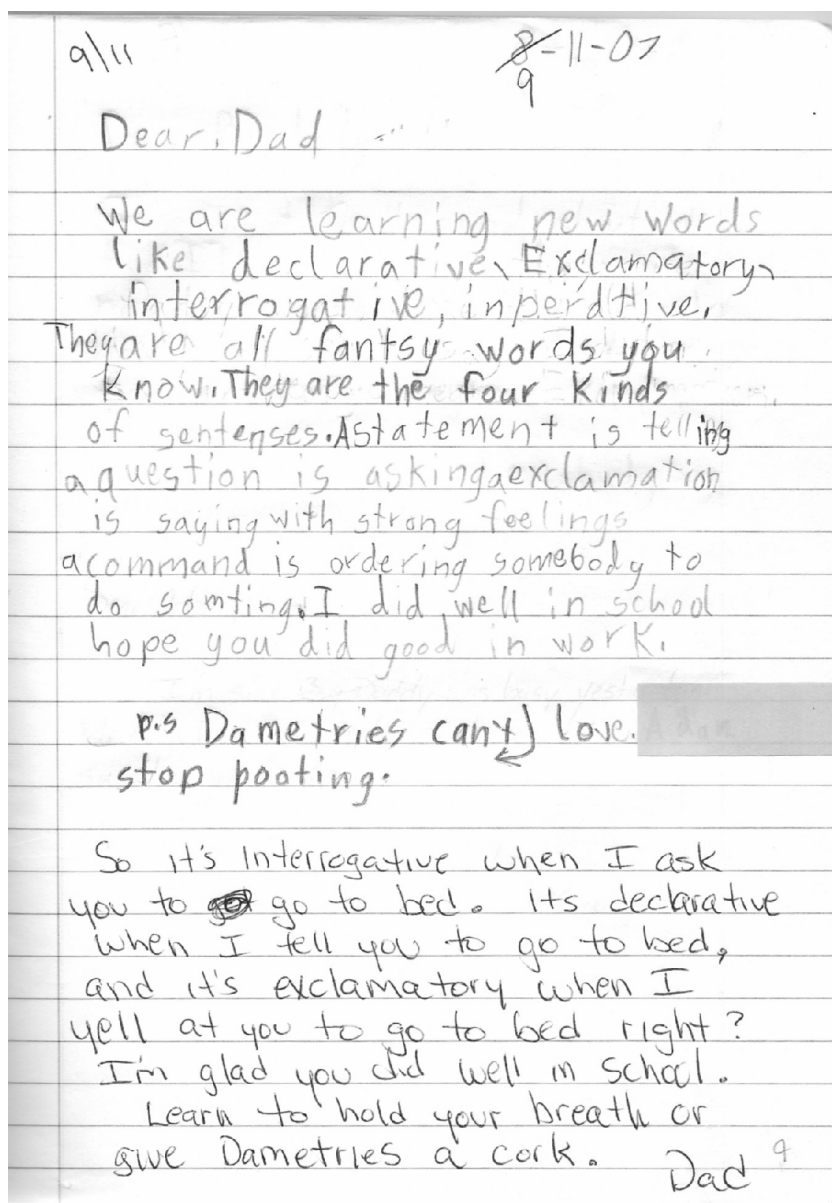 9/11 8-11-07
9
Dear. Dad
We are learning new words
like declarative, Exclamatory,
interrogative, inperdtive.
They are all fantsy words you
know. They are the four kinds
of sentenses. A statement is telling
a question is asking a exclamation
is saying with strong feelings
a command is ordering somebody to
do somting. I did well in school
hope you did good in work.
p.s Dametries can't love.
stop pooting.
So it's Interrogative when I ask
you to go to bed. Its declarative
when I tell you to go to bed,
and it's exclamatory when I
yell at you to go to bed right?
I'm glad you did well in school.
Learn to hold your breath or
give Dametries a cork.
Dad